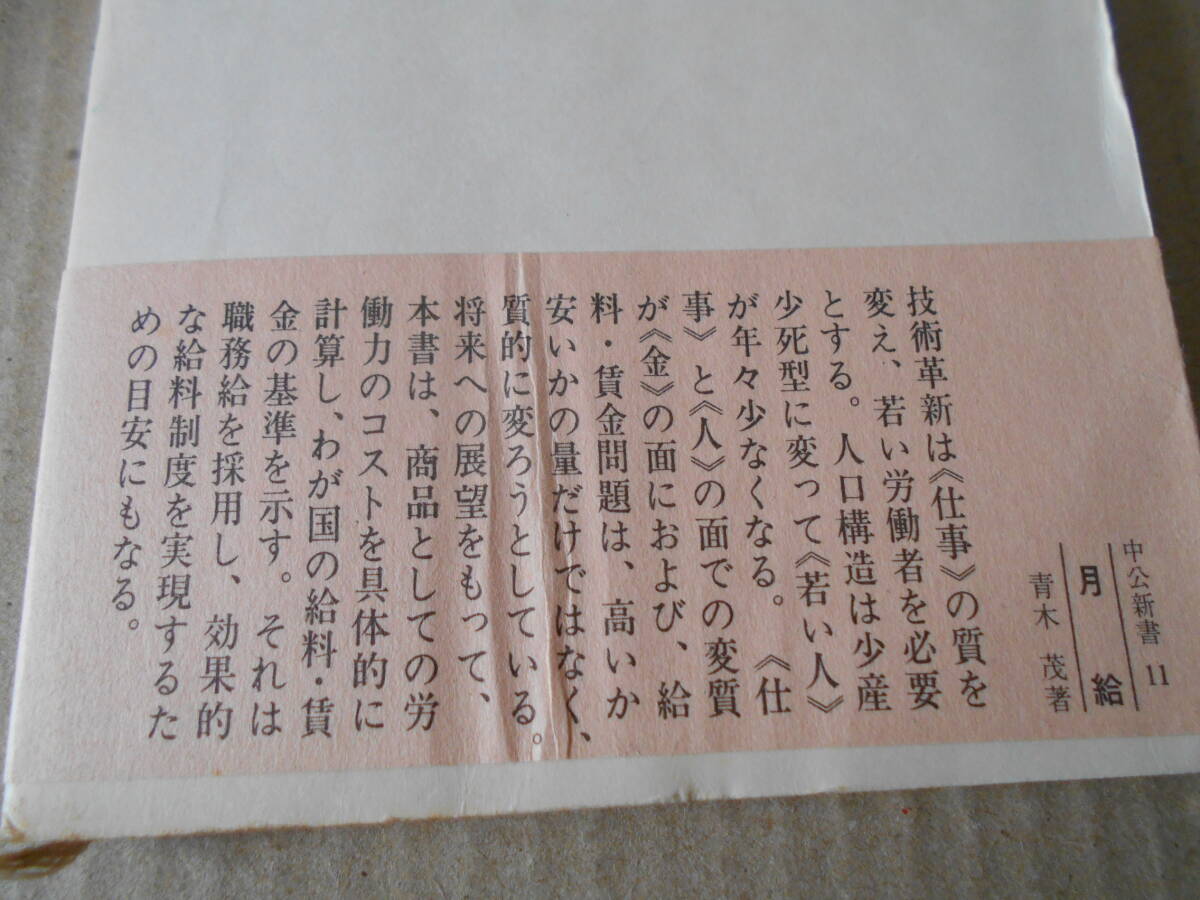 中公新書 11
月給
青木 茂著
技術革新は《仕事》の質を
変え、若い労働者を必要
とする。人口構造は少産
少死型に変って《若い人》
が年々少なくなる。《仕
事》と《人》の面での変質
が《金》の面におよび、給
料・賃金問題は、高いか
安いかの量だけではなく、
質的に変ろうとしている。
将来への展望をもって、
本書は、商品としての労
働力のコストを具体的に
計算し、わが国の給料・賃
金の基準を示す。それは
職務給を採用し、効果的
な給料制度を実現するた
めの目安にもなる。